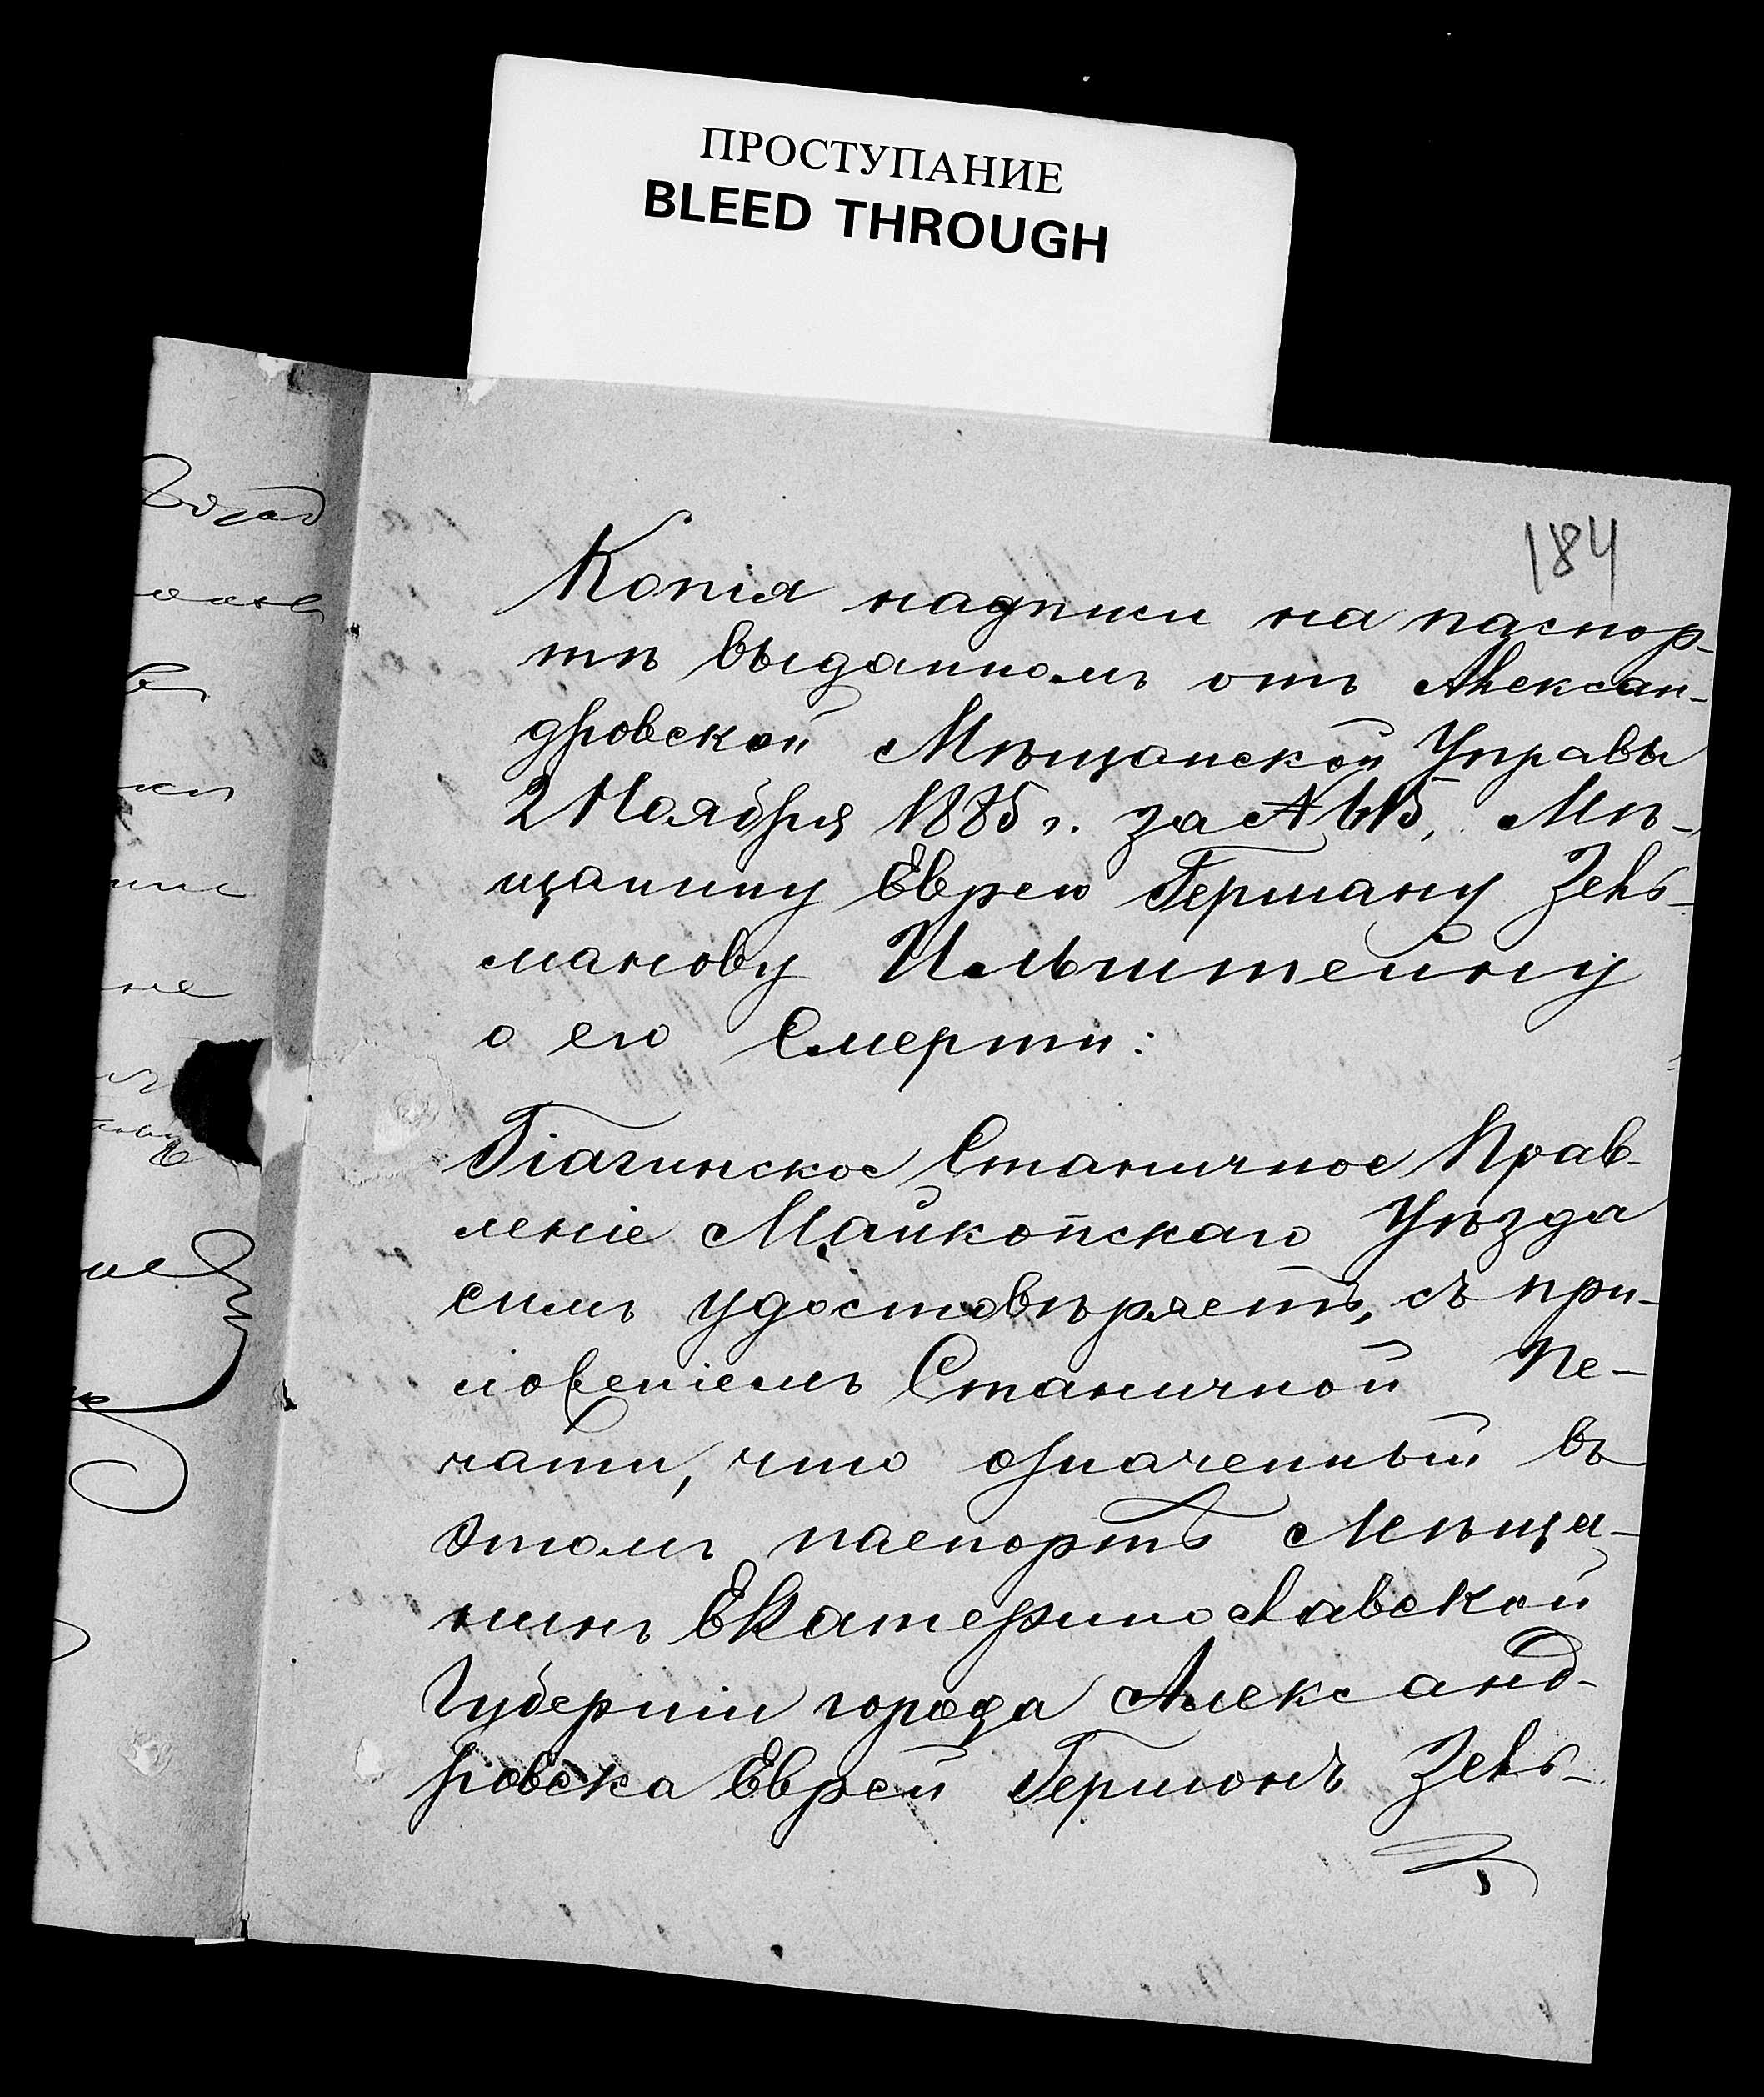 ПРОСТУПАНИЕ
BLEED THROUGH
184
Копія надписи на паспор-
тѣ выданномъ отъ Алексан-
дровской Мѣщанской Управы
2 Ноября 1885 г. за №, Мѣ-
щанину Еврею Герману Зель-
манову Ильштейну
о его Смерти:
Гіагинское Станичное Прав-
леніе Майкопскаго Уѣзда
симъ удостовѣряетъ, съ при-
ложеніемъ Станичной Пе-
чати, что означенный въ
этомъ паспортѣ Мѣща-
нинъ Екатеринославской
Губерніи города Александ-
ровска Еврей Германъ Зель-